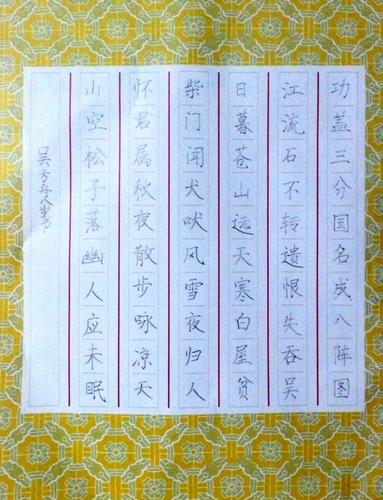 功盖三分国名成八阵图
江流石不转遗恨失吞吴
日暮苍山远天寒白屋贫
柴门闻犬吠风雪夜归人
怀君属秋夜散步咏凉天
山空松子落幽人应未眠